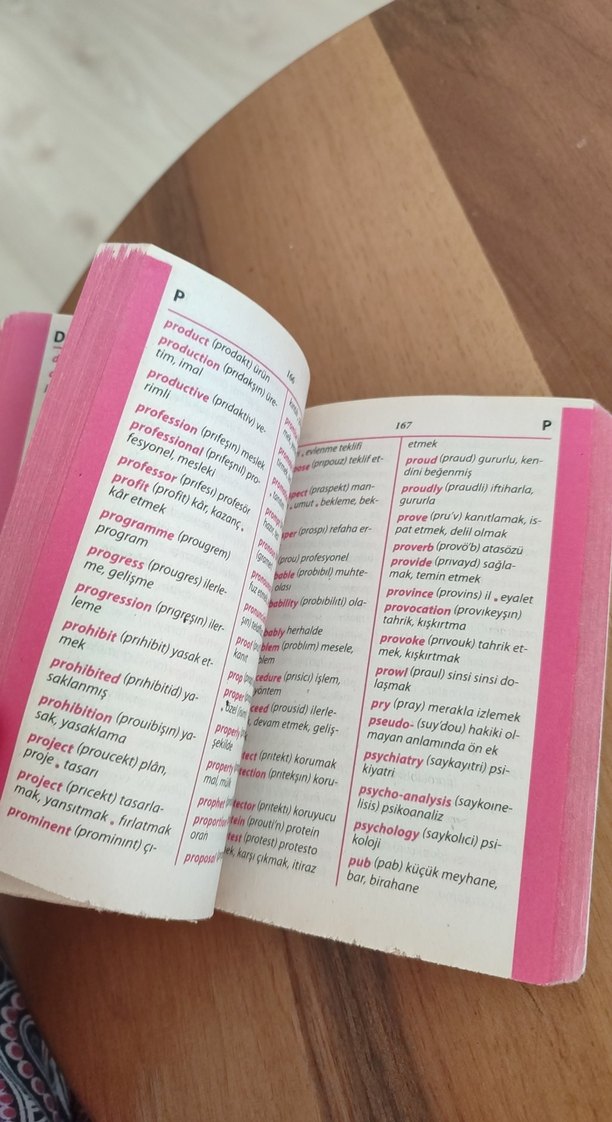 D
P
166
product (prodakt) ürün
production (prıdakşın) üre-
tim, imal
productive (prıdaktiv) ve-
rimli
profession (prıfeşın) meslek
professional (prıfeşnıl) pro-
fesyonel, mesleki
professor (prıfesı) profesör
profit (profit) kâr, kazanç •
kâr etmek
programme (prougrem)
program
progress (prougres) ilerle-
me, gelişme
progression (prıgreşın) iler-
leme
prohibit (prıhibit) yasak et-
mek
prohibited (prıhibitid) ya-
saklanmış
prohibition (prouibişın) ya-
sak, yasaklama
project (proucekt) plân,
proje • tasarı
project (prıcekt) tasarla-
mak, yansıtmak • fırlatmak
prominent (prominınt) çı-
proof
kanıt
prop
proper
• özel
properly
şekilde
property
mal, mülk
prophet
proportion
oran
proposal
167
P
• evlenme teklifi
(prıpouz) teklif et-
(praspekt) man-
• umut • bekleme, bek-
(prospı) refaha er-
(prou) profesyonel
(probıbıl) muhte-
(probıbiliti) ola-
herhalde
(problım) mesele,
(prısicı) işlem,
yöntem
(prousid) ilerle-
, devam etmek, geliş-
(prıtekt) korumak
(prıtekşın) koru-
(prıtektı) koruyucu
(prouti'n) protein
(protest) protesto
karşı çıkmak, itiraz
etmek
proud (praud) gururlu, ken-
dini beğenmiş
proudly (praudli) iftiharla,
gururla
prove (pru'v) kanıtlamak, is-
pat etmek, delil olmak
proverb (provö'b) atasözü
provide (prıvayd) sağla-
mak, temin etmek
province (provins) il • eyalet
provocation (provıkeyşın)
tahrik, kışkırtma
provoke (prıvouk) tahrik et-
mek, kışkırtmak
prowl (praul) sinsi sinsi do-
laşmak
pry (pray) merakla izlemek
pseudo- (suy'dou) hakiki ol-
mayan anlamında ön ek
psychiatry (saykayıtri) psi-
kiyatri
psycho-analysis (saykoıne-
lisis) psikoanaliz
psychology (saykolıci) psi-
koloji
pub (pab) küçük meyhane,
bar, birahane